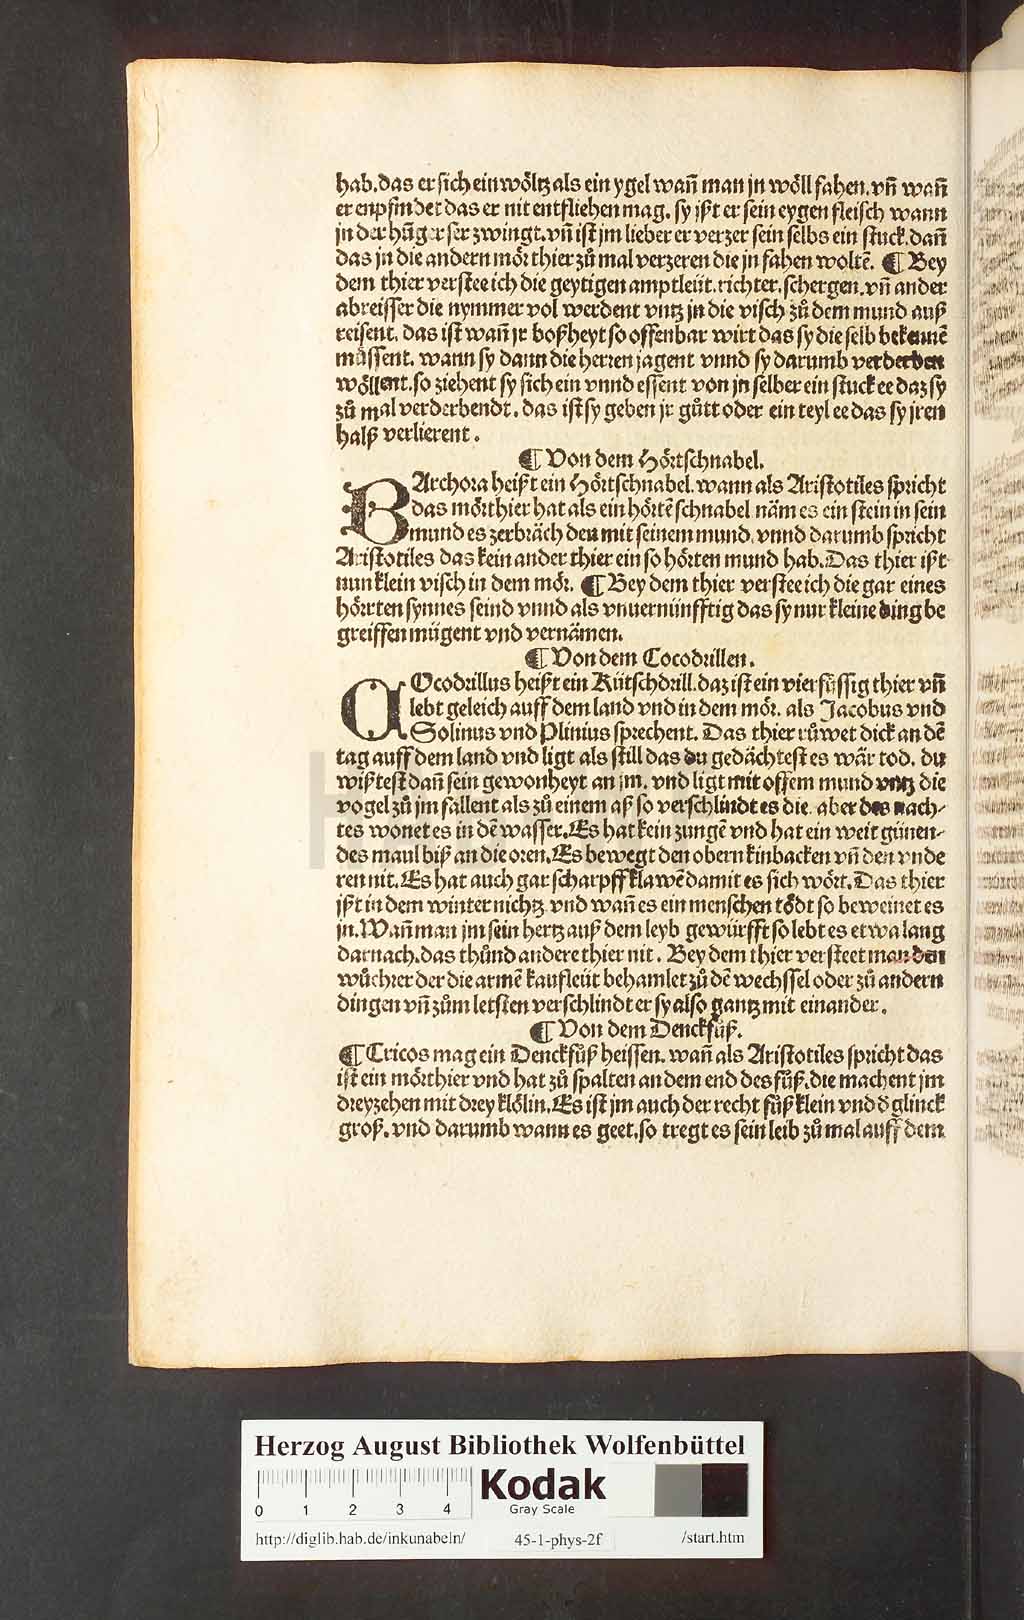 hab. das er sich ein wöltz als ein ygel wañ man jn wöll fahen. vñ wañ
er enpfindet das er nit entfliehen mag. sy ißt er sein eygen fleisch wann
jn der hũger ser zwingt. vñ ist jm lieber er verzer sein selbs ein stuck. dañ
das jn die andern mör thier zů mal verzeren die jn fahen woltē. ¶ Bey
dem thier verstee ich die geytigen amptleüt. richter. schergen. vñ ander
abreisser die nymmer vol werdent vntz jn die visch zů dem mund auß
reisent. das ist wañ jr boßheyt so offenbar wirt das sy die selb bekennē
müssent. wann sy dann die herren jagent vnnd sy darumb verderben
wöllent. so ziehent sy sich ein vnnd essent von jn selber ein stuck ee daz sy
zů mal verderbendt. das ist sy geben jr gůtt oder ein teyl ee das sy jren
halß verlierent.
¶ Von dem Hörtschnabel.
BArchora heißt ein Hörtschnabel. wann als Aristotiles spricht
das mörthier hat als ein hörtē schnabel näm es ein stein in sein
mund es zerbräch den mit seinem mund. vnnd darumb spricht
Aristotiles das kein ander thier ein so hörten mund hab. Das thier ißt
nun klein visch in dem mör. ¶ Bey dem thier verstee ich die gar eines
hörrten synnes seind vnnd als vnuernünfftig das sy nur kleine ding be
greiffen mügent vnd vernämen.
¶ Von dem Cocodrillen.
COcodrillus heißt ein Kütschdrill. daz ist ein vierfüssig thier vñ
lebt geleich auff dem land vnd in dem mör. als Jacobus vnd
Solinus vnd Plinius sprechent. Das thier růwet dick an dē
tag auff dem land vnd ligt als still das du gedächtest es wär tod. du
wißtest dañ sein gewonheyt an jm. vnd ligt mit offem mund vntz die
vogel zů jm fallent als zů einem aß so verschlindt es die. aber des nach-
tes wonet es in dē wasser. Es hat kein zungē vnd hat ein weit günen-
des maul biß an die oren. Es bewegt den obern kinbacken vñ den vnde
ren nit. Es hat auch gar scharpff klawē damit es sich wört. Das thier
ißt in dem winter nichtz. vnd wañ es ein menschen tödt so beweinet es
jn. Wañ man jm sein hertz auß dem leyb gewürfft so lebt es etwa lang
darnach. das thůnd andere thier nit. Bey dem thier versteet man den
wůchrer der die armē kaufleüt behamlet zů dē wechssel oder zů andern
dingen vñ zům letsten verschlindt er sy also gantz mit einander.
¶ Von dem Denckfůß.
¶ Tricos mag ein Denckfůß heissen. wañ als Aristotiles spricht das
ist ein mörthier vnd hat zů spalten an dem end des fůß. die machent jm
drey zehen mit drey klölin. Es ist jm auch der recht fůß klein vnd d glinck
groß. vnd darumb wann es geet. so tregt es sein leib zů mal auff dem
Herzog August Bibliothek Wolfenbüttel
0 1 2 3 4
Kodak
Gray Scale
http://diglib.hab.de/inkunabeln/ 45-1-phys-2f /start.htm